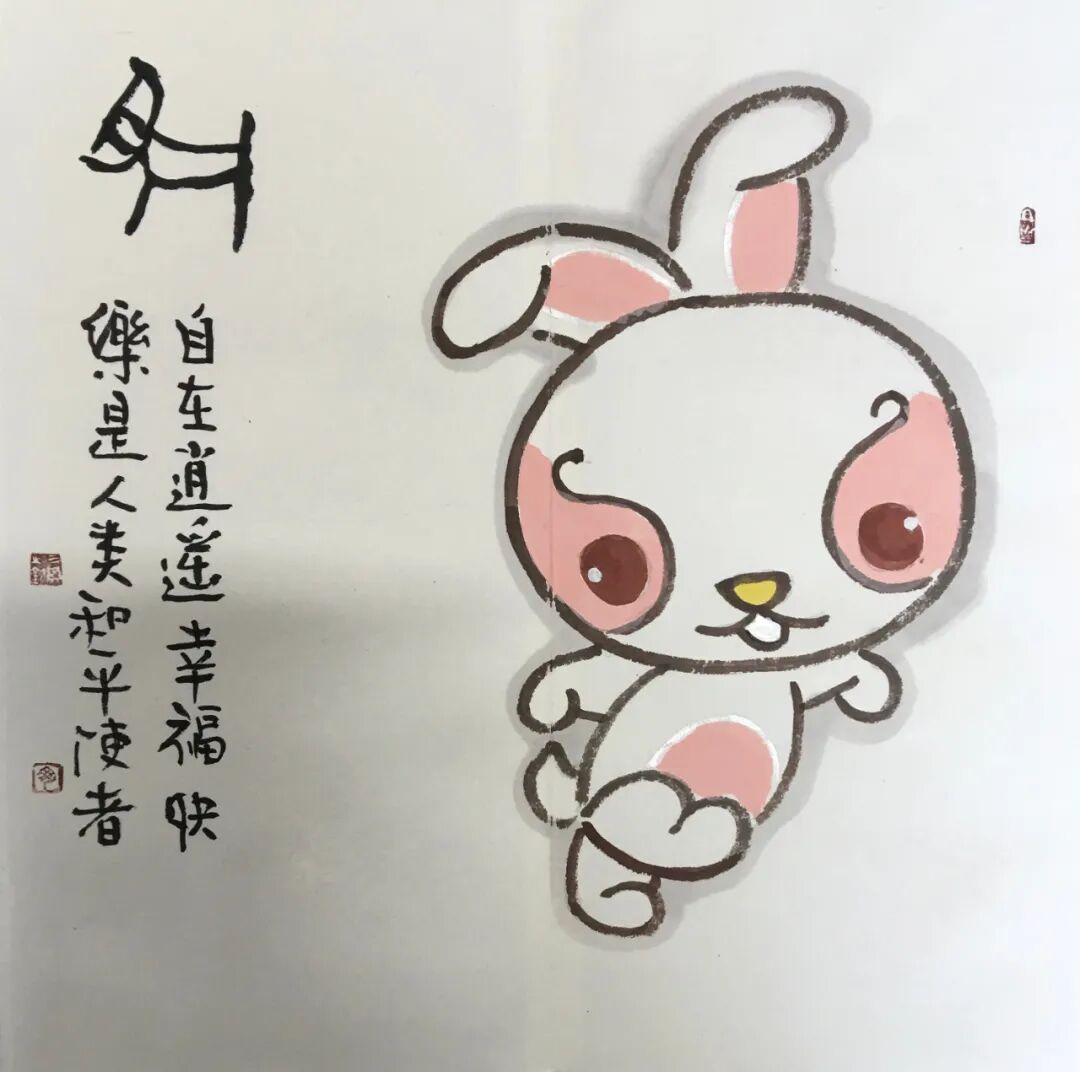 自在逍遥幸福快
樂是人类和平使者